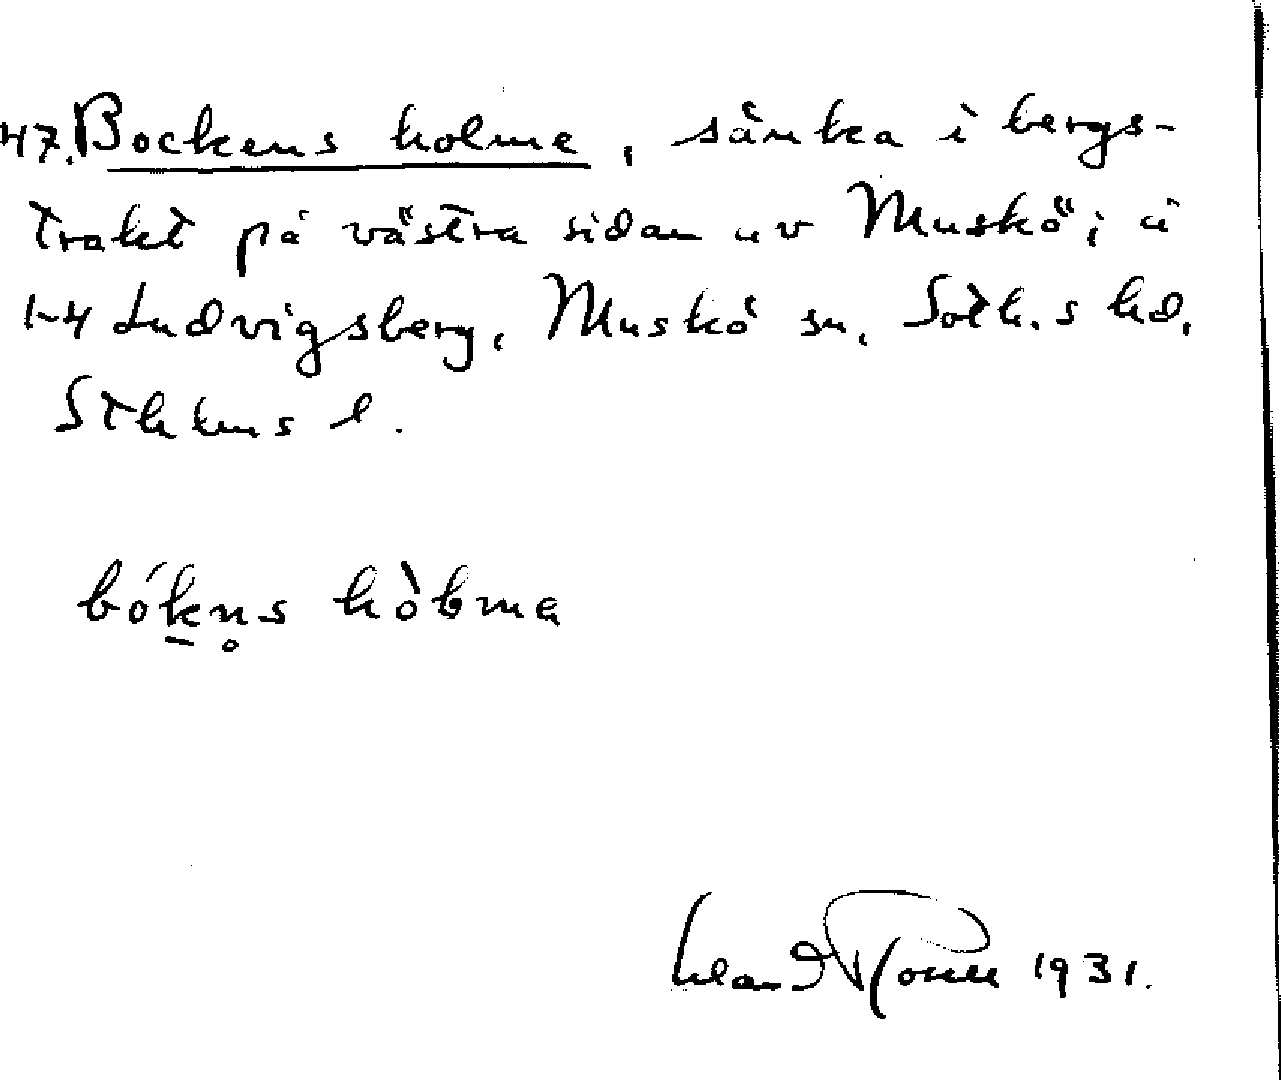 47. Bockens holme, sänka i bergs-
trakt på västra sidan av Muskö; å
1-4 Ludvigsberg, Muskö sn, Soth.s hd,
Sthlms l.
bókn̥s hòlma
1931.